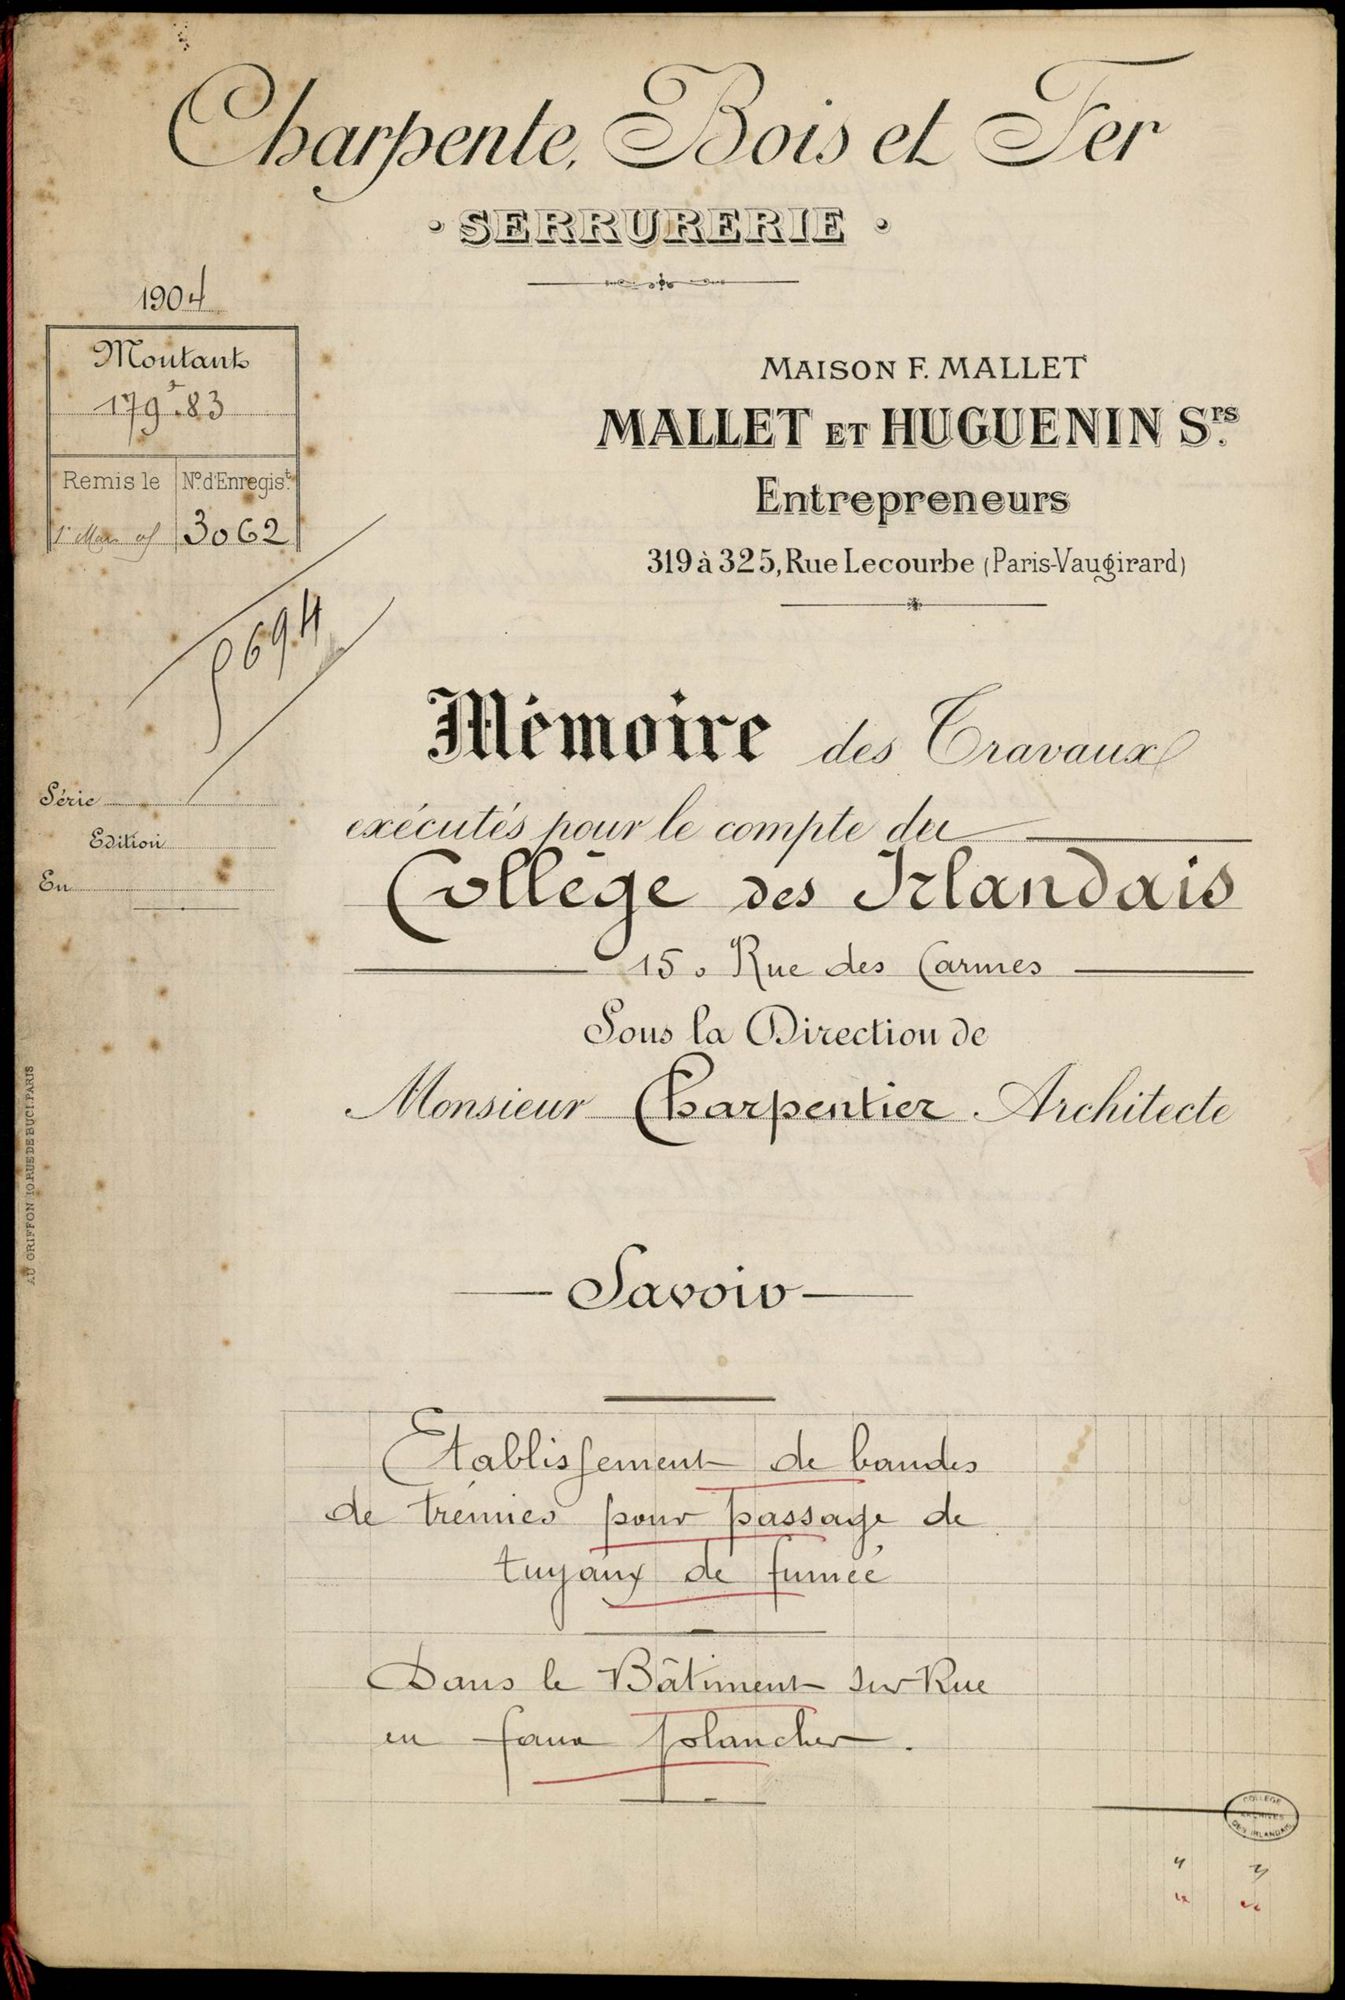 Charpente, Bois et Fer
SERRURERIE
1904
Montant
179f.83
Remis le
No. d'Enregist.
1r Mars
3062
MAISON F. MALLET
MALLET ET HUGUENIN Srs.
Entrepreneurs
319 à 325, Rue Lecourbe (Paris-Vaugirard)
5694
Mémoire des Travaux
exécutés pour le compte du
Série
Edition
En
Collège des Irlandais
15. Rue des Carmes
Sous la Direction de
Monsieur Charpentier Architecte
AU GRIFFON 10, RUE DE BUCI. PARIS
Savoir
Etablissement de bandes
de trémies pour passage de
tuyaux de fumée
Dans le Bâtiment sur Rue
en faux plancher.
COLLEGE
ARCHIVES
DES IRLANDAIS